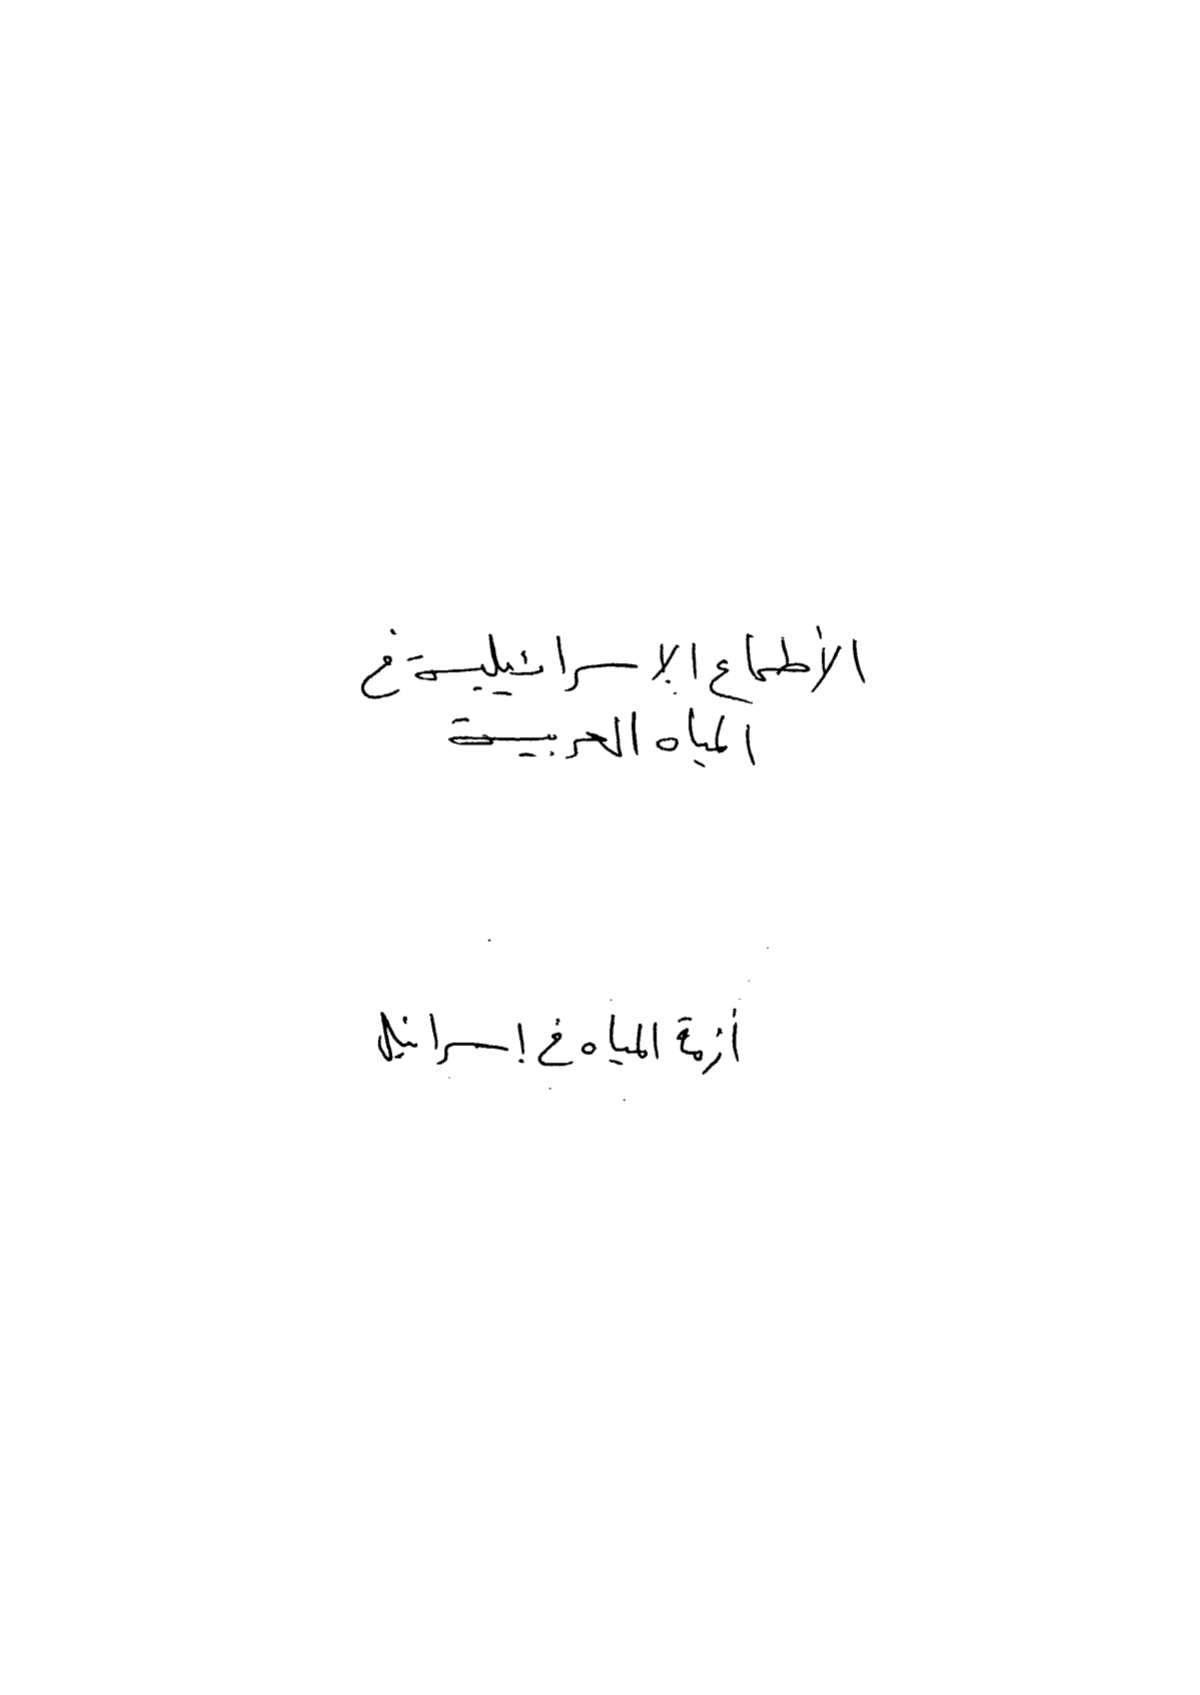 الأطماع الإسرائيلية في
المياه العربية
أزمة المياه في إسرائيل